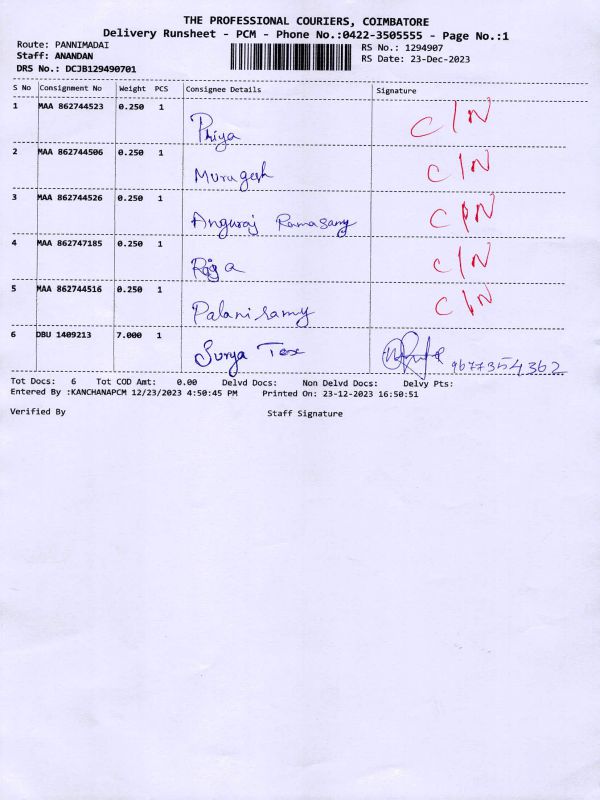 THE PROFESSIONAL COURIERS, COIMBATORE
Delivery Runsheet - PCM - Phone No.:0422-3505555 - Page No.:1
Route: PANNIMADAI
Staff: ANANDAN
DRS No.: DCJB129490701
RS No.: 1294907
RS Date: 23-Dec-2023
S No Consignment No Weight PCS Consignee Details Signature
1 MAA 862744523 0.250 1 Priya C/N
2 MAA 862744506 0.250 1 Murugesh C/N
3 MAA 862744526 0.250 1 Anguraj Ramasamy C/N
4 MAA 862747185 0.250 1 Raja C/N
5 MAA 862744516 0.250 1 Palanisamy C/N
6 DBU 1409213 7.000 1 Surya Tex 9677354362
Tot Docs: 6 Tot COD Amt: 0.00 Delvd Docs: Non Delvd Docs: Delvy Pts:
Entered By :KANCHANAPCM 12/23/2023 4:50:45 PM Printed On: 23-12-2023 16:50:51
Verified By Staff Signature